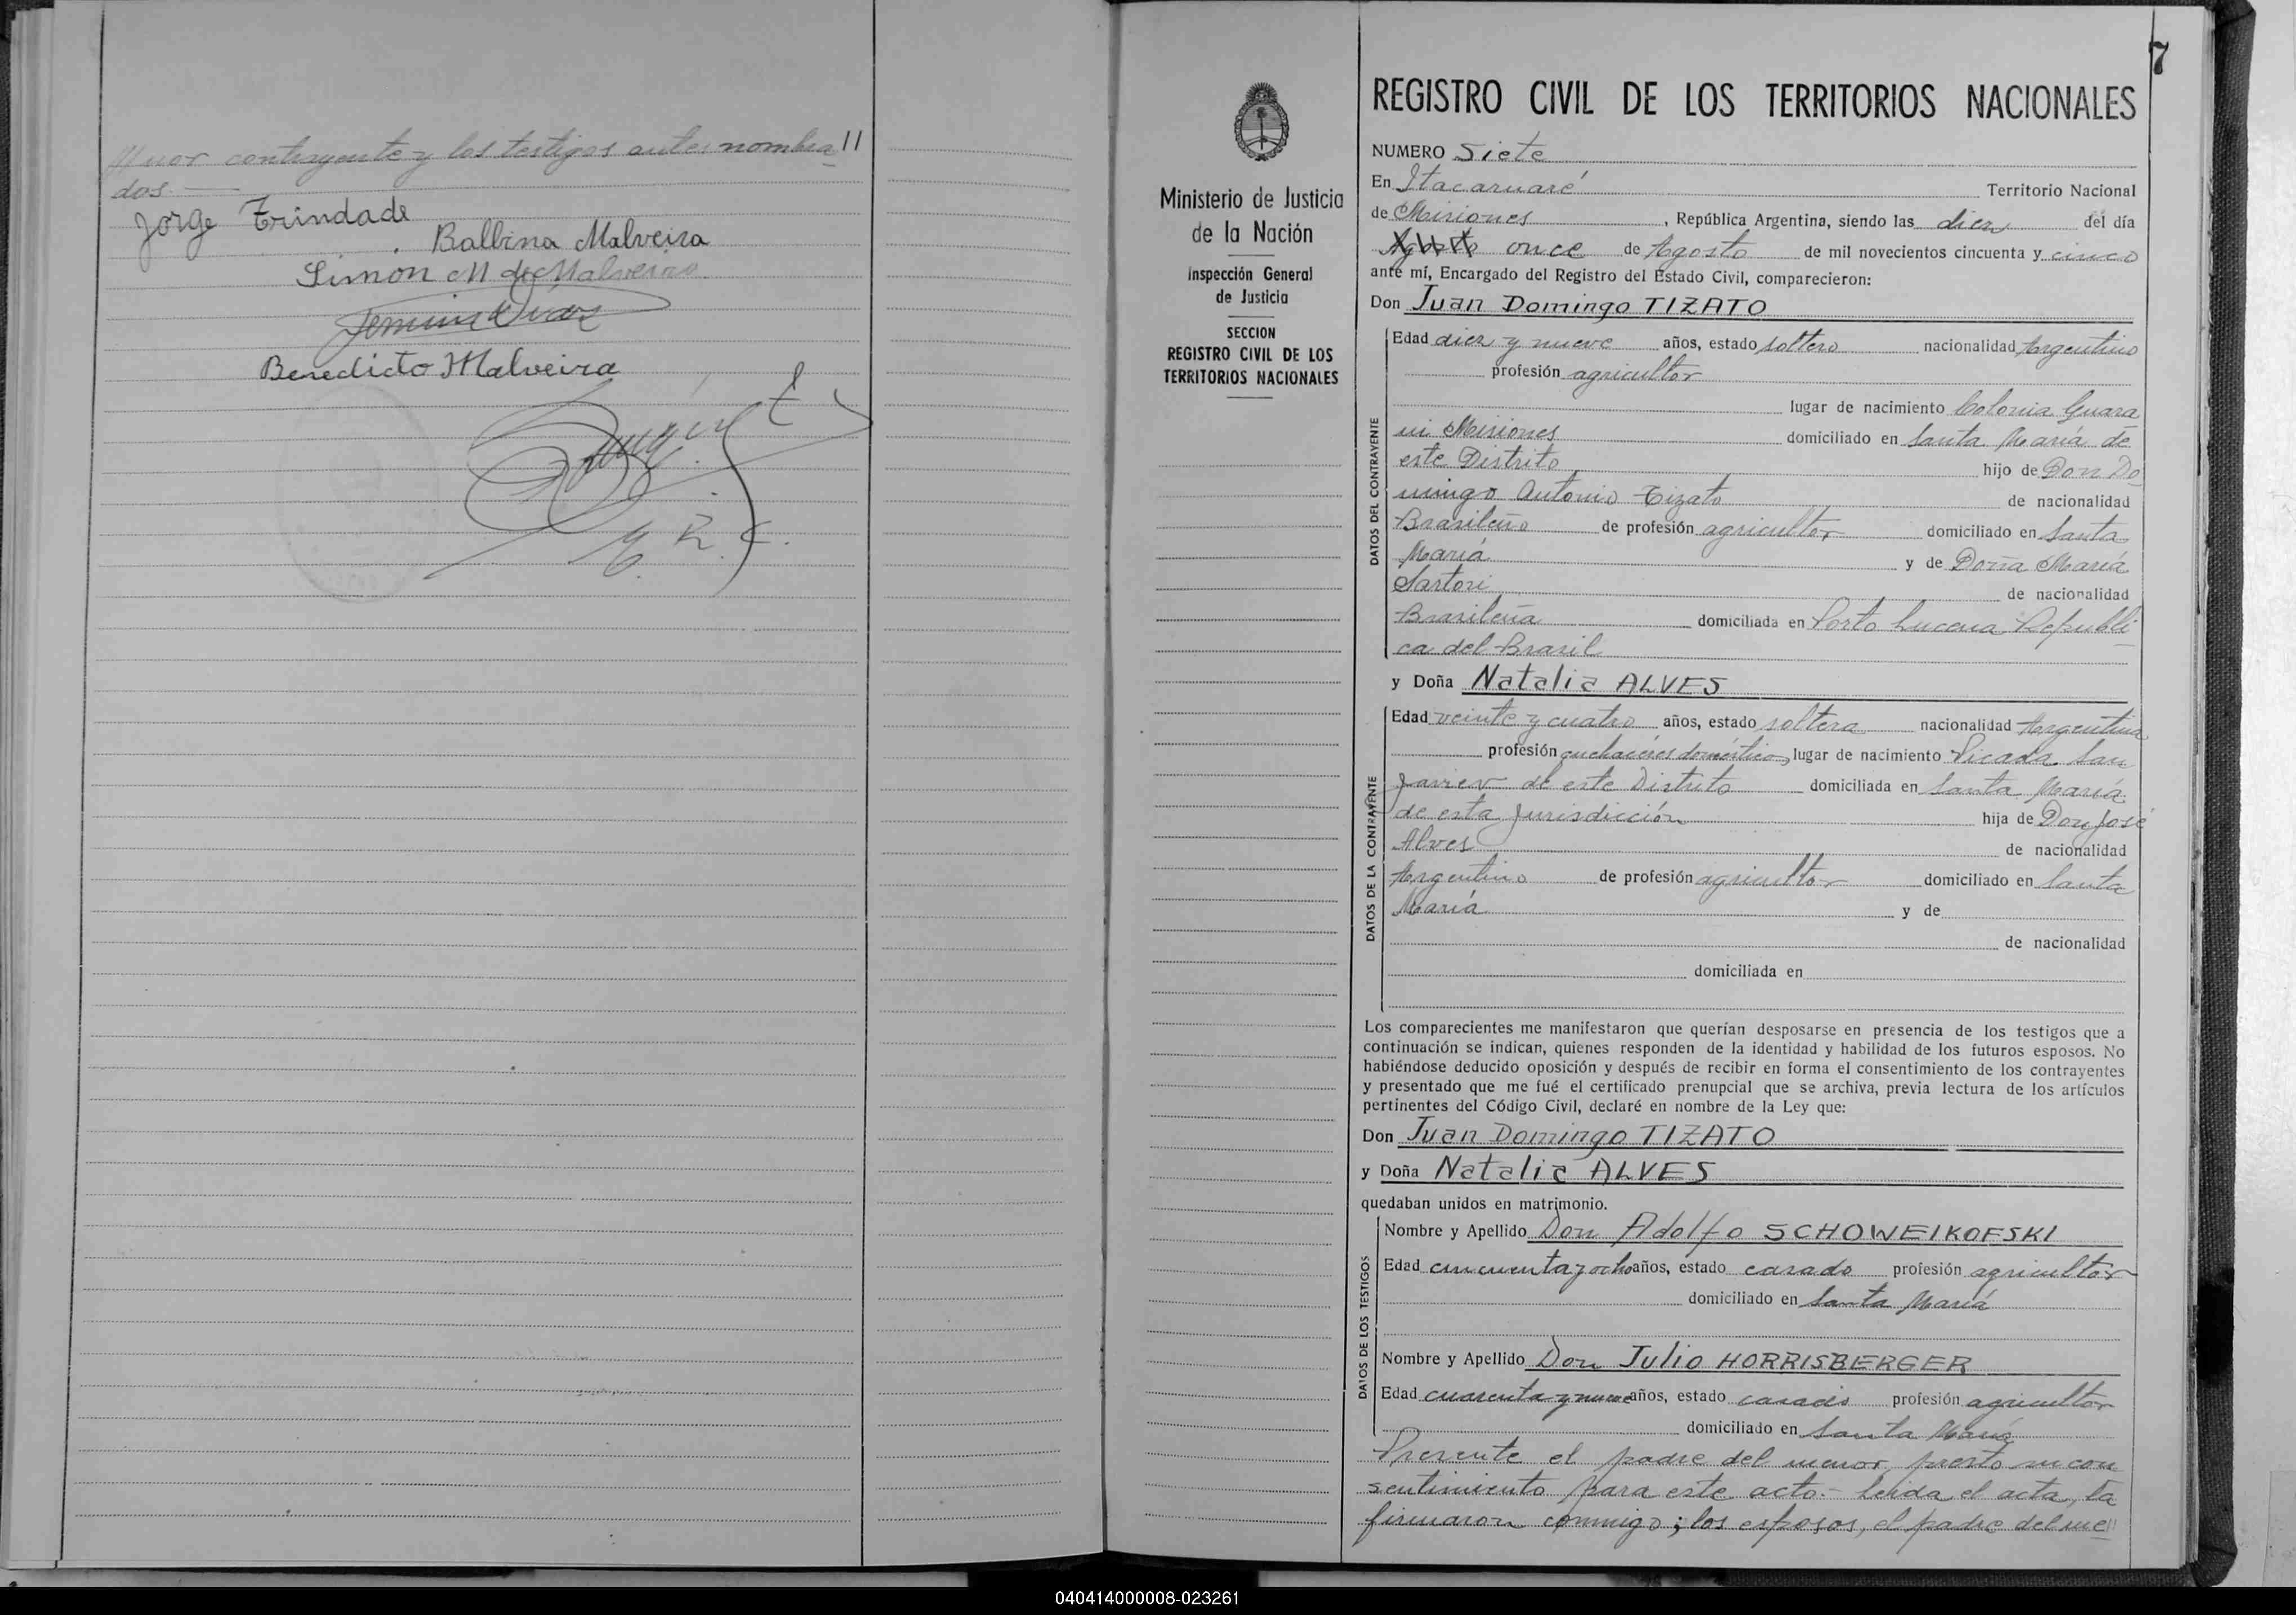 contrayente y los testigos antes nombra
dos.
Jorge Trindade
Balbina Malveira
Simon M de Malveira
Benedicto Malveira
E. R. C.
7
Ministerio de Justicia
de la Nación
Inspección General
de Justicia
SECCION
REGISTRO CIVIL DE LOS
TERRITORIOS NACIONALES
REGISTRO CIVIL DE LOS TERRITORIOS NACIONALES
NUMERO Siete
En Itacaruaré Territorio Nacional
de Misiones, República Argentina, siendo las diez del día
Agosto once de Agosto de mil novecientos cincuenta y cinco
ante mí, Encargado del Registro del Estado Civil, comparecieron:
Don Juan Domingo TIZATO
DATOS DEL CONTRAYENTE
Edad diez y nueve años, estado soltero nacionalidad Argentino
profesión agricultor
lugar de nacimiento Colonia Guara
ní Misiones domiciliado en Santa María de
este Distrito hijo de Don Do
mingo Antonio Tizato de nacionalidad
Brasileño de profesión agricultor domiciliado en Santa
María y de Doña María
Sartori de nacionalidad
Brasileña domiciliada en Porto Lucena Republi
ca del Brasil
y Doña Natalia ALVES
DATOS DE LA CONTRAYENTE
Edad veinte y cuatro años, estado soltera nacionalidad Argentina
profesión quehaceres domésticos, lugar de nacimiento Picada San
Javier de este Distrito domiciliada en Santa María
de esta Jurisdicción hija de Don José
Alves de nacionalidad
Argentino de profesión agricultor domiciliado en Santa
María y de
de nacionalidad
domiciliada en
Los comparecientes me manifestaron que querían desposarse en presencia de los testigos que a
continuación se indican, quienes responden de la identidad y habilidad de los futuros esposos. No
habiéndose deducido oposición y después de recibir en forma el consentimiento de los contrayentes
y presentado que me fué el certificado prenupcial que se archiva, previa lectura de los artículos
pertinentes del Código Civil, declaré en nombre de la Ley que:
Don Juan Domingo TIZATO
y Doña Natalia ALVES
quedaban unidos en matrimonio.
DATOS DE LOS TESTIGOS
Nombre y Apellido Don Adolfo SCHOWEIKOFSKI
Edad cincuenta y ocho años, estado casado profesión agricultor
domiciliado en Santa María
Nombre y Apellido Don Julio HORRISBERGER
Edad cuarenta y nueve años, estado casado profesión agricultor
domiciliado en Santa María
Presente el padre del menor, prestó su con
sentimiento para este acto.- Leída el acta, la
firmaron conmigo; los esposos, el padre del me
040414000008-023261